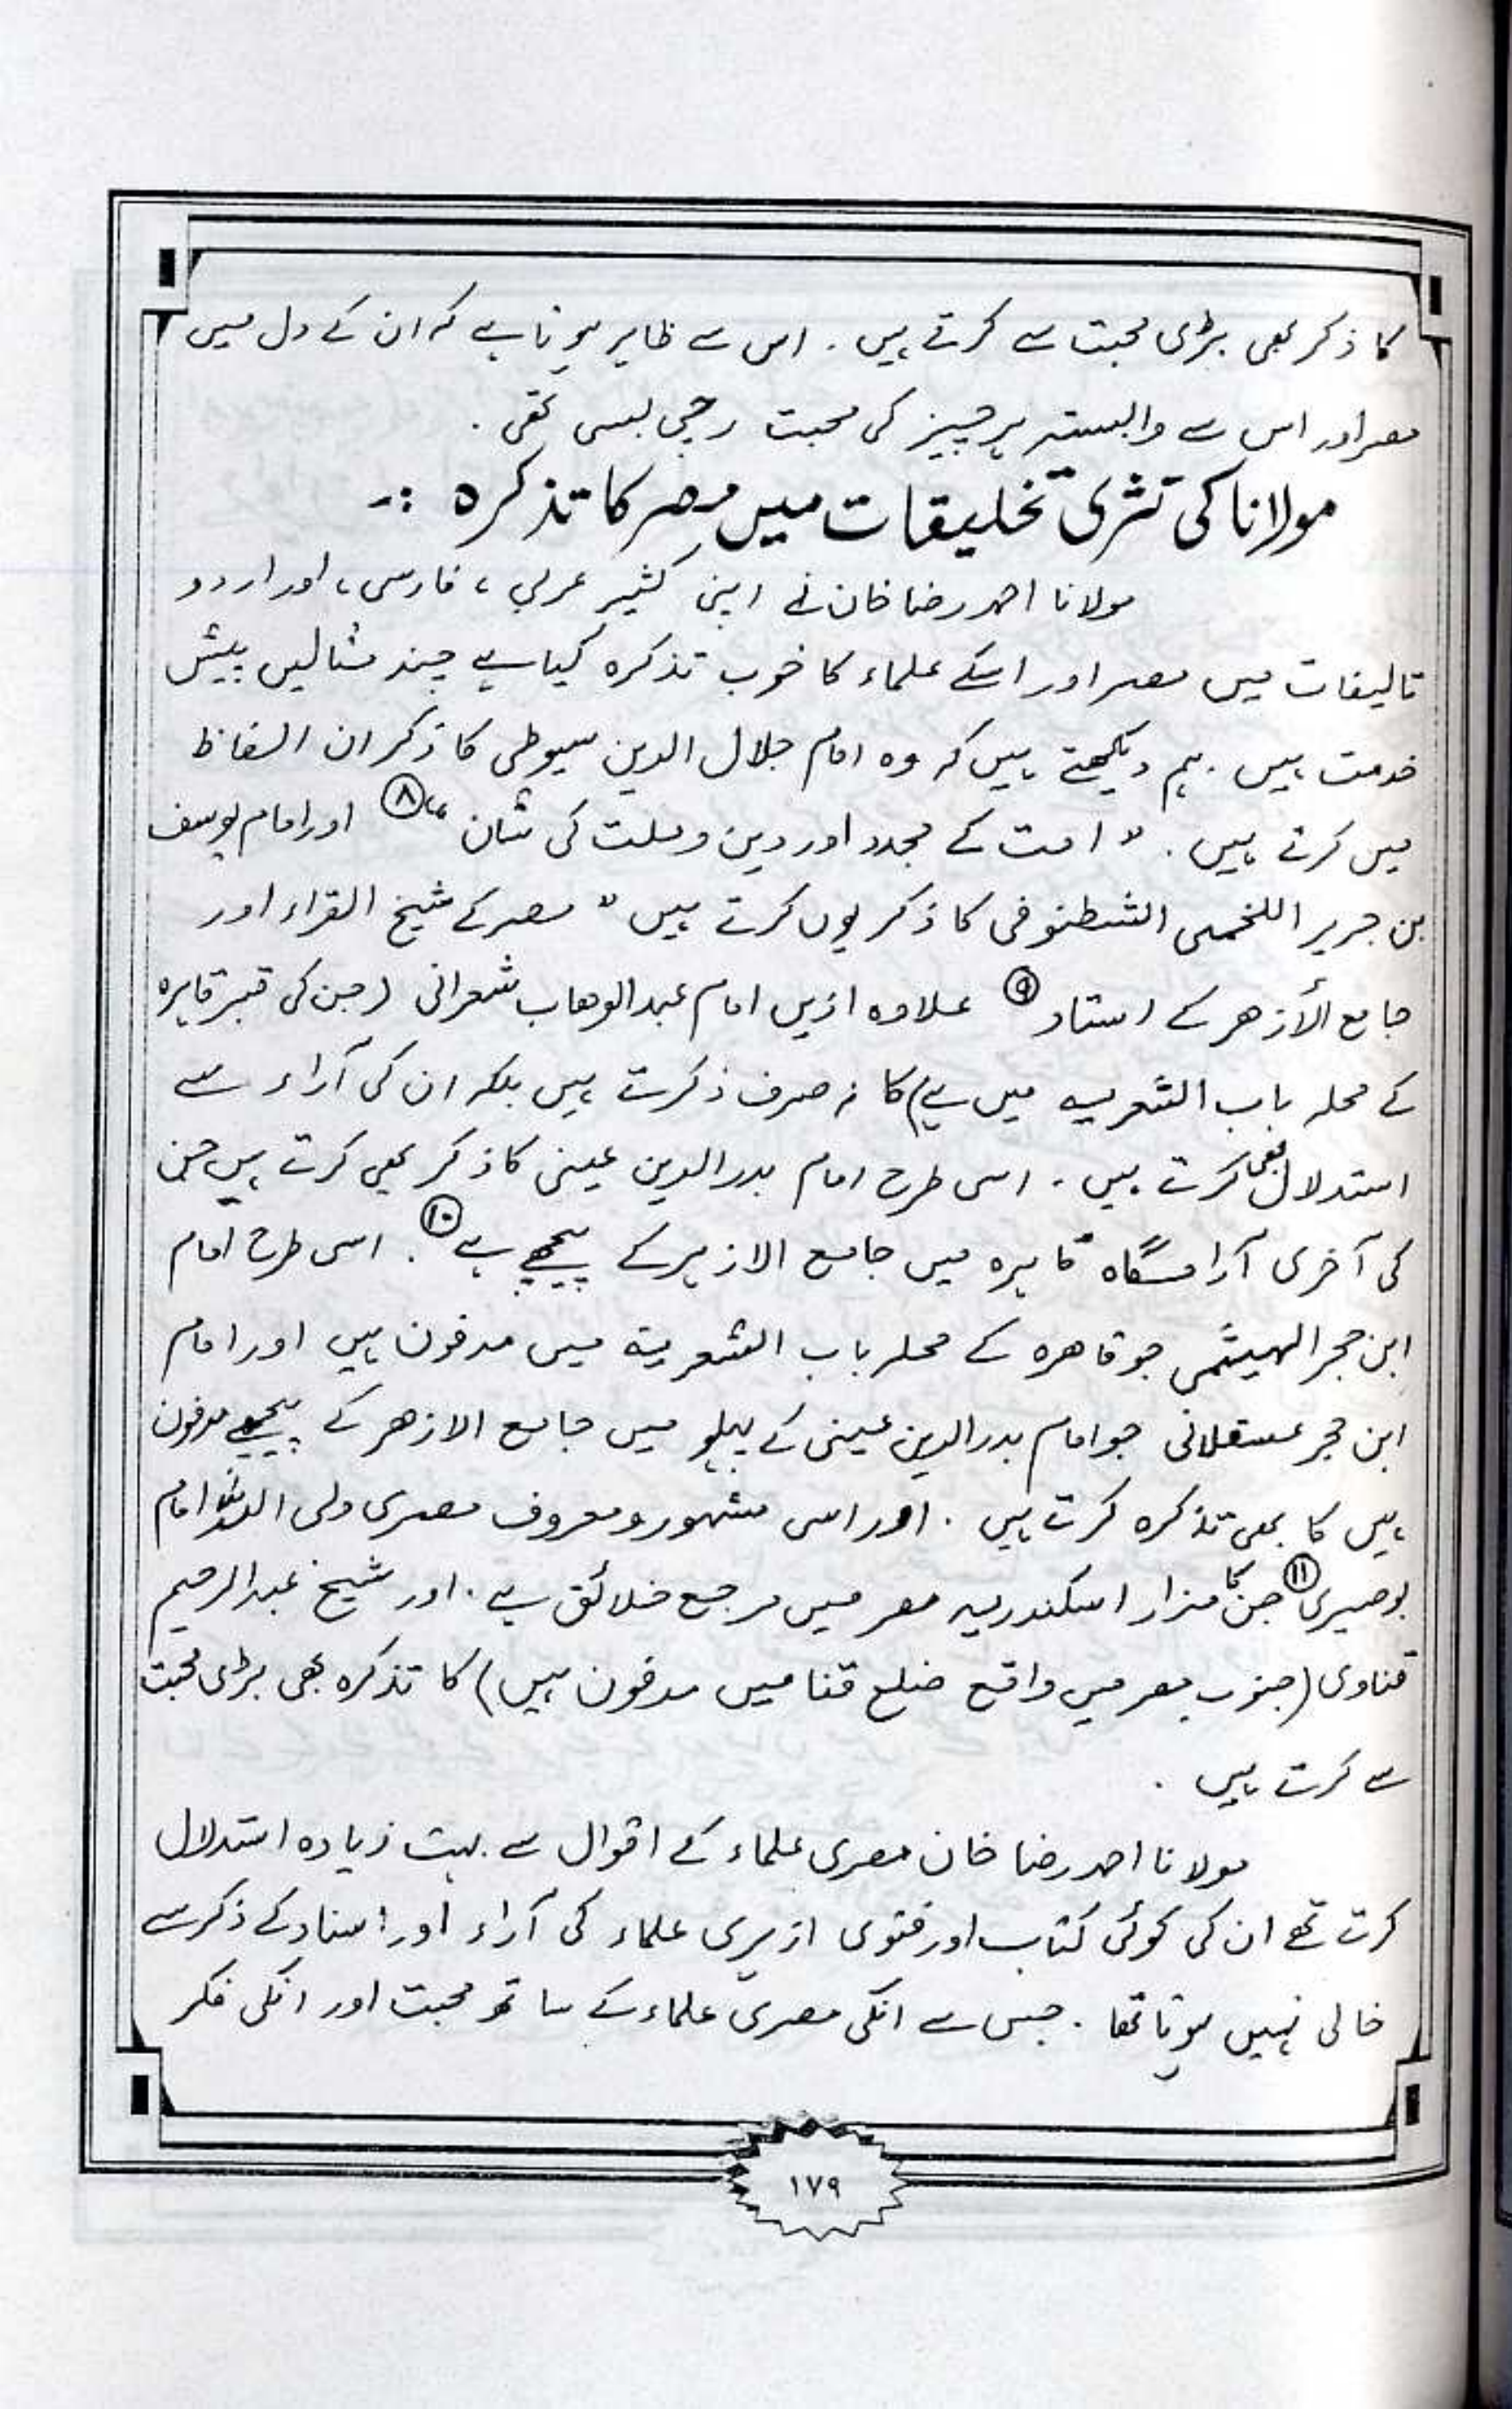 کا ذکر بھی بڑی محبت سے کرتے ہیں۔ اس سے ظاہر ہوتا ہے کہ ان کے دل میں
مصر اور اس سے وابستہ ہر چیز کی محبت رچی بسی تھی۔
مولانا کی نثری تخلیقات میں مصر کا تذکرہ :-
مولانا احمد رضا خان نے اپنی کثیر عربی، فارسی، اور اردو
تالیفات میں مصر اور اسکے علماء کا خوب تذکرہ کیا ہے چند مثالیں پیش
خدمت ہیں۔ ہم دیکھتے ہیں کہ وہ امام جلال الدین سیوطی کا ذکر ان الفاظ
میں کرتے ہیں۔ "امت کے مجدد اور دین و ملت کی شان" ⑧ اور امام یوسف
بن جریر اللخمی الشطنوفی کا ذکر یوں کرتے ہیں "مصر کے شیخ القراء اور
جامع الأزھر کے استاد ⑨ علاوہ ازیں امام عبد الوھاب شعرانی (جن کی قبر قاہرہ
کے محلہ باب الشعریہ میں ہے) کا نہ صرف ذکرت ہیں بلکہ ان کی آراء سے
استدلال بھی کرتے ہیں۔ اسی طرح امام بدر الدین عینی کا ذکر بھی کرتے ہیں جن
کی آخری آرامگاہ قاہرہ میں جامع الازہر کے پیچھے ہے ⑩۔ اسی طرح امام
ابن حجر الہیثمی جو قاھرہ کے محلہ باب الشعریۃ میں مدفون ہیں اور امام
ابن حجر عسقلانی جو امام بدر الدین عینی کے پہلو میں جامع الازھر کے پیچھے مدفون
ہیں کا بھی تذکرہ کرتے ہیں۔ اور اسی مشہور و معروف مصری ولی اللہ امام
بوصیری ⑪ جن کا مزار اسکندریہ مصر میں مرجع خلائق ہے۔ اور شیخ عبد الرحیم
قناوی (جنوب مصر میں واقع ضلع قنا میں مدفون ہیں) کا تذکرہ بھی بڑی محبت
سے کرتے ہیں۔
مولانا احمد رضا خان مصری علماء کے اقوال سے بہت زیادہ استدلال
کرتے تھے ان کی کوئی کتاب اور فتوی ازہری علماء کی آراء اور اسناد کے ذکر سے
خالی نہیں ہوتا تھا۔ جس سے انکی مصری علماء کے ساتھ محبت اور انکی فکر
١٧٩